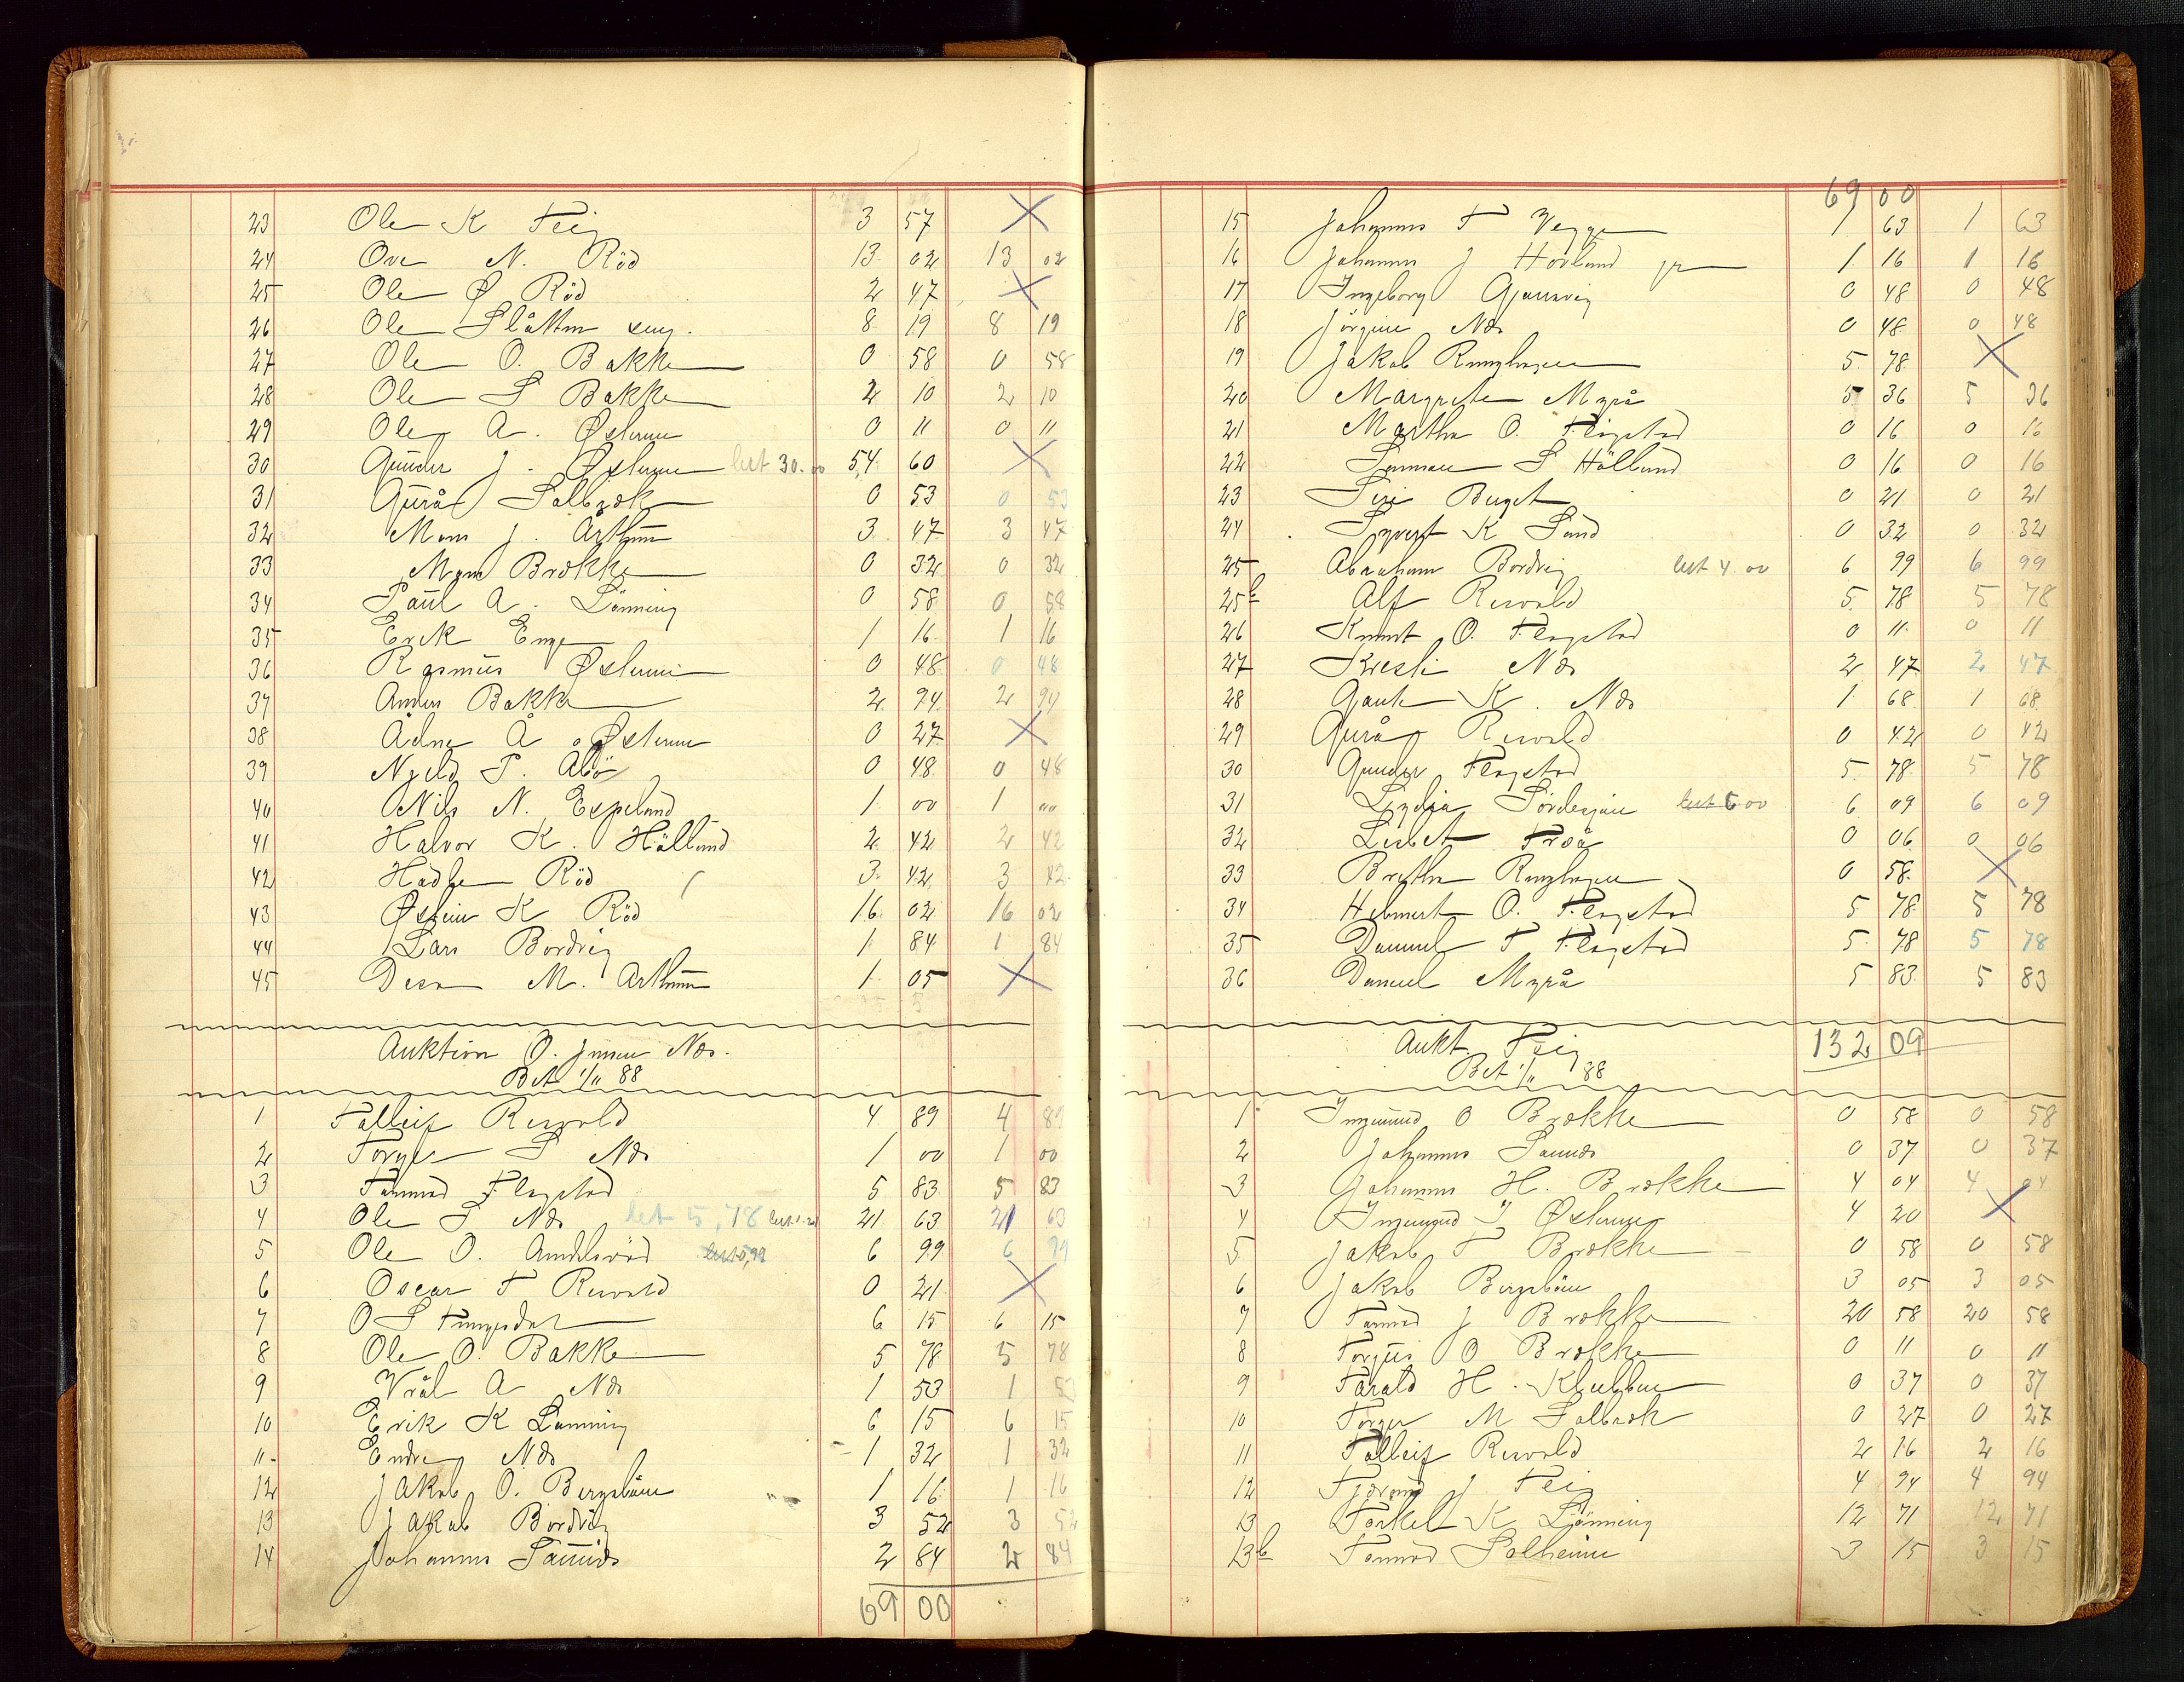 23 Ole K Teig 3 57
24 Ove N. Röd 13 02 13 02
25 Ole Ø Röd 2 47
26 Ole Slåtten 8 19 8 19
27 Ole O. Bakke 0 58 0 58
28 Ole S Bakke 2 10 2 10
29 Ole A. Østerne 0 11 0 11
30 Gunder J. Østerne bet 30.00 54 60
31 Guro Solbrek 0 53 0 53
32 Mons J. Arthun 3 47 3 47
33 Mons Brække 0 32 0 32
34 Paul A. Lönning 0 58 0 58
35 Erik Enge 1 16 1 16
36 Rasmus Østerne 0 48 0 48
37 Anders Bakke 2 94 2 94
38 Ådne Å Østerne 0 27
39 0 48 0 48
40 Nils N. Espeland 1 00 1 00
41 Halvor K. Hålland 2 42 2 42
42 Röd 3 42 3 42
43 Østein K Röd 16 02 16 02
44 Lars Bordvig 1 84 1 84
45 M. Arthun 1 05
Auktion O. Jensen Næs.
Bet 1/11 88
1 Talleif Resvold 4 89 4 89
2 Torger S Næs 1 00 1 00
3 Tarmod Flogstad 5 83 5 83
4 Ole T Næs bet 5,78 21 63 21 63
5 Ole O. Amdalsröd bet 5,99 6 99 6 99
6 Oscar T Resvold 0 21
7 O S Tungesdal 6 15 6 15
8 Ole O. Bakke 5 78 5 78
9 Vrål A Næs 1 53 1 53
10 Erik K Lönning 6 15 6 15
11 Endre Næs 1 32 1 32
12 Jakob O. Bergsböen 1 16 1 16
13 Jakob Bordvig 3 52 3 52
14 Johannes Saunds 2 84 2 84
69 00
69 00
15 Johannes T Vegge 1 63 1 63
16 Johannes J Hovland jr 1 16 1 16
17 Ingeborg Gjersvig 0 48 0 48
18 Jörgine Næs 0 48 0 48
19 Jakob Runghagen 5 78
20 Margrete Myrå 5 36 5 36
21 Martha O. Flogstad 0 16 0 16
22 S Hålland 0 16 0 16
23 Siri Berget 0 21 0 21
24 Syvert K Sand 0 32 0 32
25 Abraham Bordvig bet 4.00 6 99 6 99
25b Alf Resvold 5 78 5 78
26 Knut O. Flogstad 0 11 0 11
27 Kresti Næs 2 47 2 47
28 Gaute K. Næs 1 68 1 68
29 Guro Resvold 0 42 0 42
30 Gunder Flogstad 5 78 5 78
31 Lydia Sördesjöen bet 6 00 6 09 6 09
32 Lisbet Troå 0 06 0 06
33 Bertha Runghagen 0 58
34 Helmert O. Flogstad 5 78 5 78
35 Daniel T Flogstad 5 78 5 78
36 Daniel Myrå 5 83 5 83
Aukt. Teig 132 09
Bet 1/11 88
1 Ingmund O Brække 0 58 0 58
2 Johannes Saunds 0 37 0 37
3 Johannes H. Brække 4 04 4 04
4 J Østerne 4 20
5 Jakob T Brække 0 58 0 58
6 Jakob Bergsböen 3 05 3 05
7 Tarmod J Brække 20 58 20 58
8 Torjus O Brække 0 11 0 11
9 Tarald H. Klubben 0 37 0 37
10 Torger M Solbrek 0 27 0 27
11 Talleif Resvold 2 16 2 16
12 Tjöramd J Teig 4 94 4 94
13 Torkel K Lönning 12 71 12 71
13b Tarmod Solheim 3 15 3 15